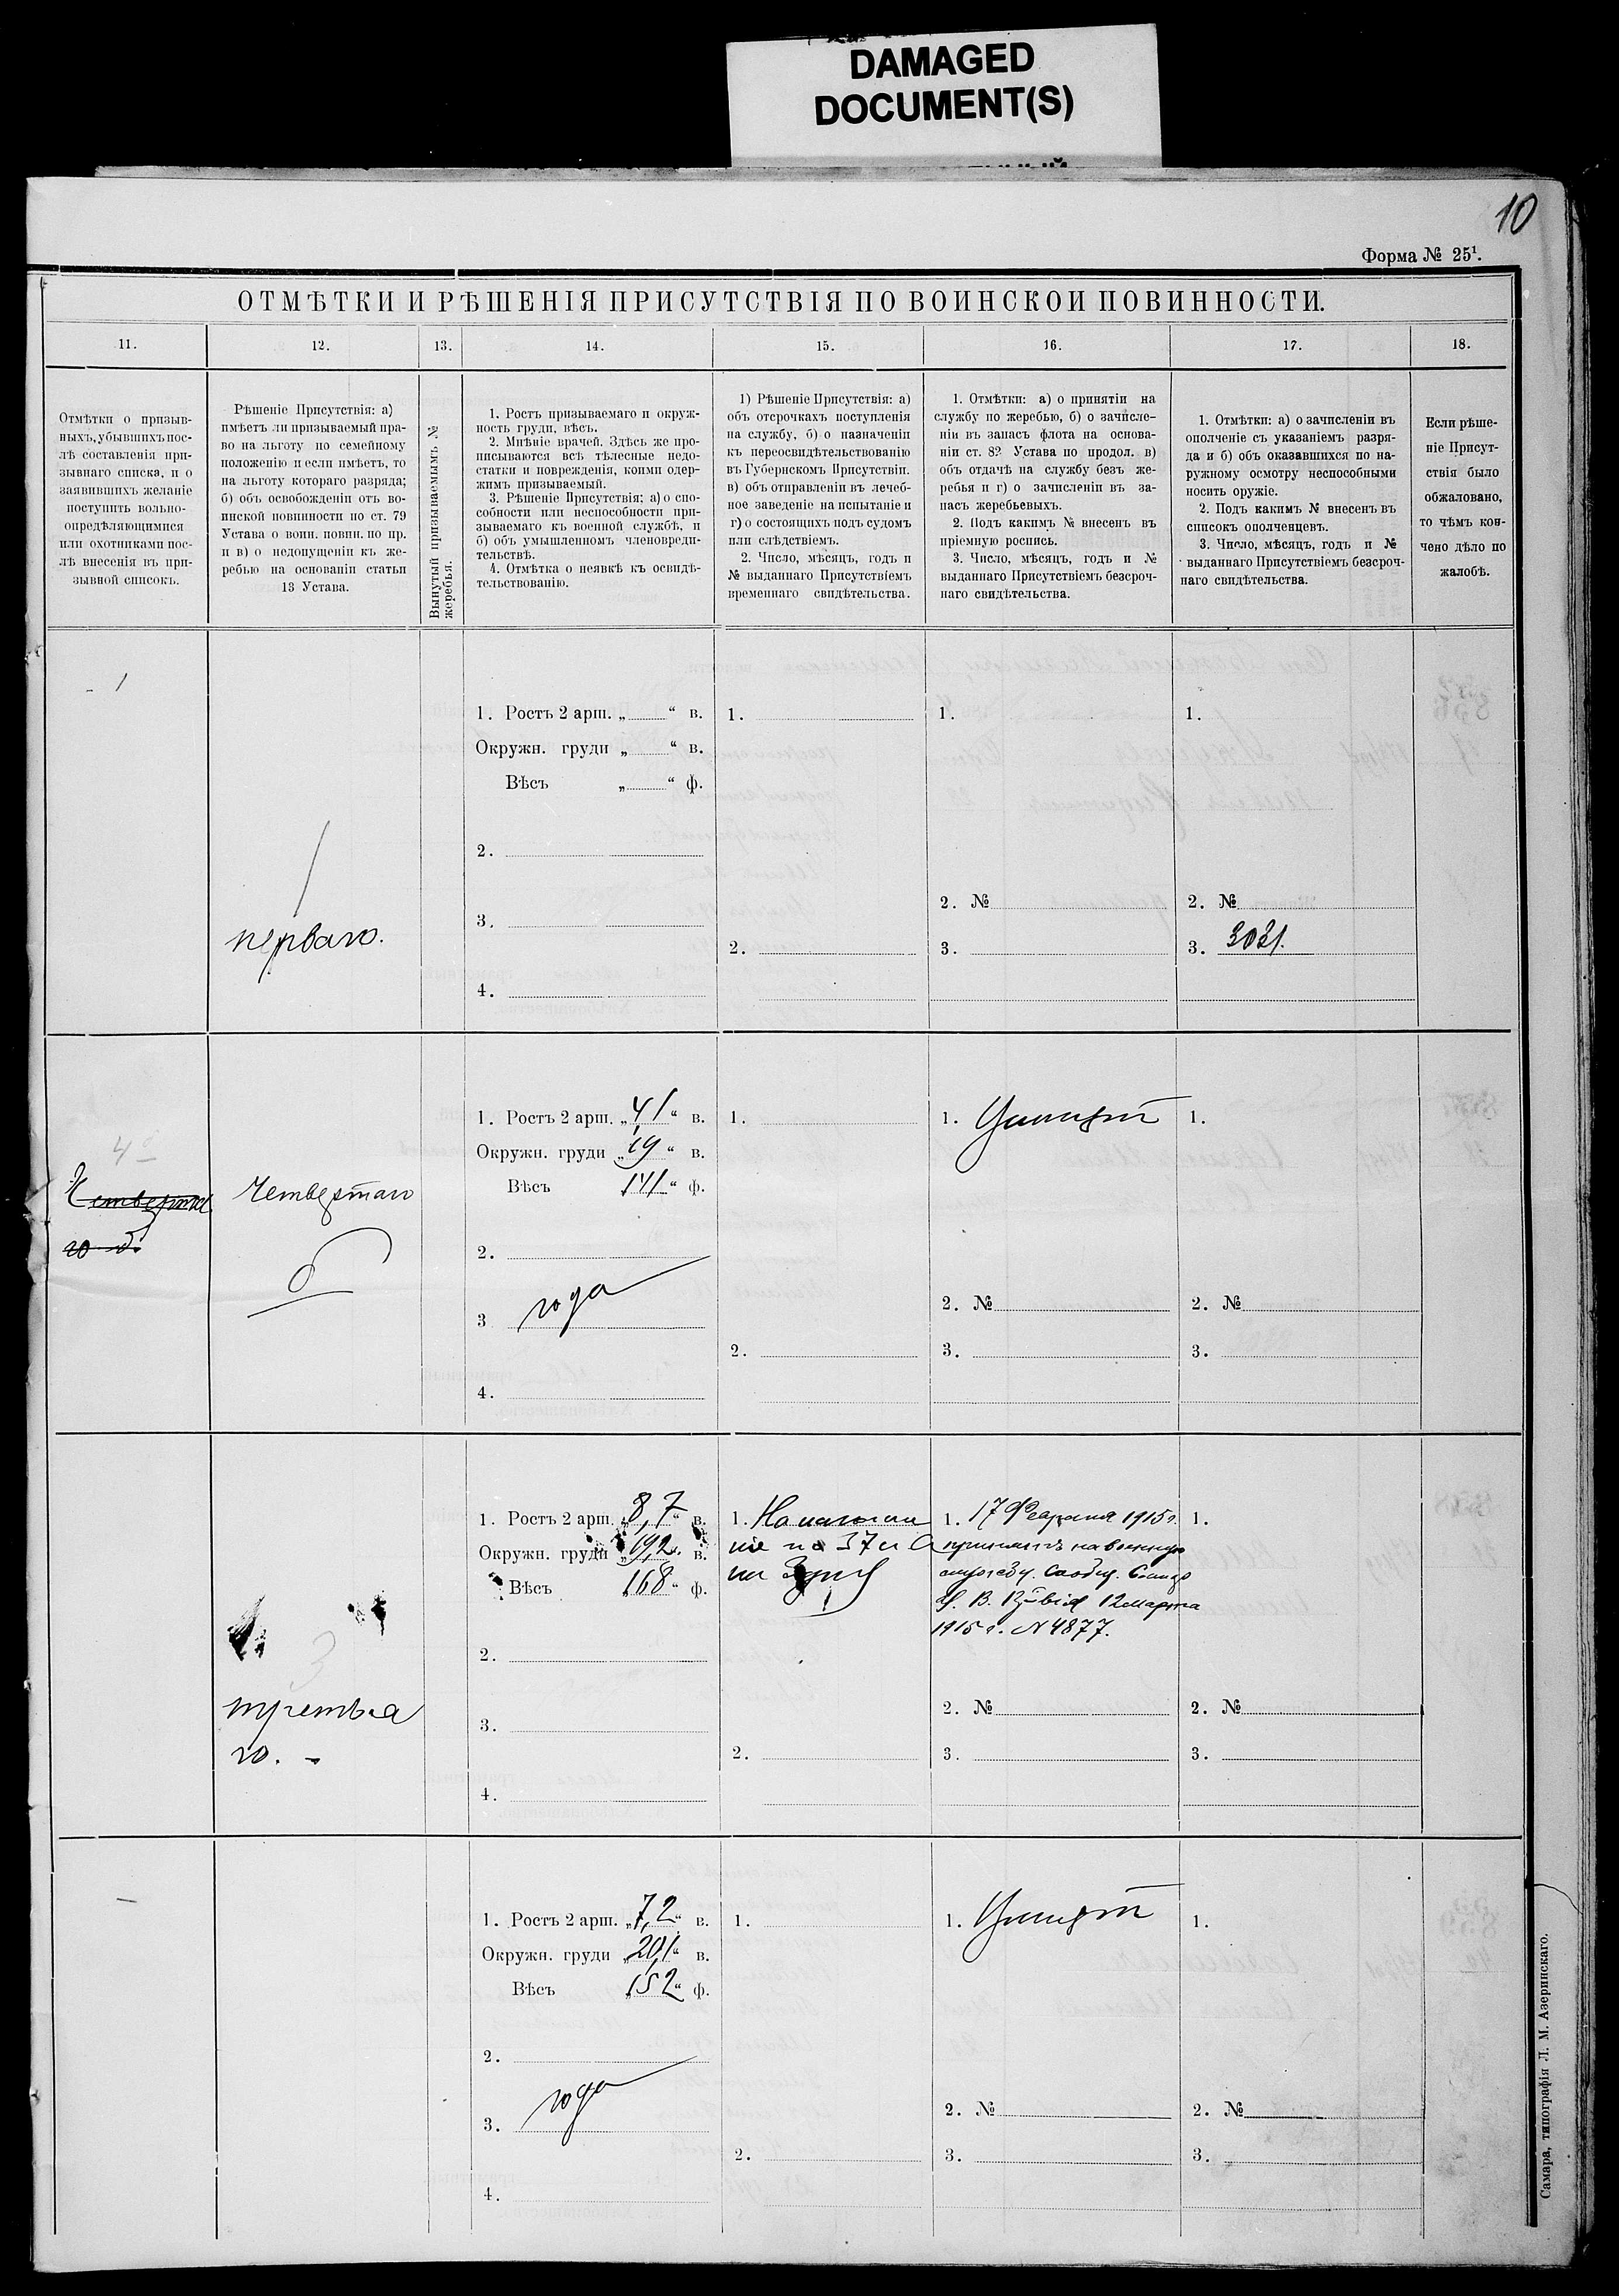 DAMAGED
DOCUMENT(S)
10
Форма № 25¹.
ОТМѢТКИ И РѢШЕНІЯ ПРИСУТСТВІЯ ПО ВОИНСКОЙ ПОВИННОСТИ.
11. 12. 13. 14. 15. 16. 17. 18.
Отмѣтки о призыв-
ныхъ, убывшихъ пос-
лѣ составленія при-
зывнаго списка, и о
заявившихъ желаніе
поступить вольно-
опредѣляющимися
или охотниками пос-
лѣ внесенія въ при-
зывной списокъ.
Рѣшеніе Присутствія: а)
имѣетъ ли призываемый пра-
во на льготу по семейному
положенію и если имѣетъ, то
на льготу котораго разряда;
б) объ освобожденіи отъ во-
инской повинности по ст. 79
Устава о воин. повин. по пр.
и в) о недопущеніи къ же-
ребью на основаніи статьи
13 Устава.
Вынутый призываемымъ №
жеребья.
1. Ростъ призываемаго и окруж-
ность груди, вѣсъ.
2. Мнѣніе врачей. Здѣсь же про-
писываются всѣ тѣлесные недо-
статки и поврежденія, коими одер-
жимъ призываемый.
3. Рѣшеніе Присутствія: а) о спо-
собности или неспособности при-
зываемаго къ военной службѣ, и
б) объ умышленномъ членовреди-
тельствѣ.
4. Отмѣтка о неявкѣ къ освидѣ-
тельствованію.
1) Рѣшеніе Присутствія: а)
объ отсрочкахъ поступленія
на службу, б) о назначеніи
къ переосвидѣтельствованію
въ Губернскомъ Присутствіи.
в) объ отправленіи въ лечеб-
ное заведеніе на испытаніе и
г) о состоящихъ подъ судомъ
или слѣдствіемъ.
2. Число, мѣсяцъ, годъ и
№ выданнаго Присутствіемъ
временнаго свидѣтельства.
1. Отмѣтки: а) о принятіи на
службу по жеребью, б) о зачисле-
ніи въ запасъ флота на основа-
ніи ст. 82 Устава по продол. в)
объ отдачѣ на службу безъ же-
ребья и г) о зачисленіи въ за-
пасъ жеребьевыхъ.
2. Подъ какимъ № внесенъ въ
пріемную роспись.
3. Число, мѣсяцъ, годъ и №
выданнаго Присутствіемъ безсроч-
наго свидѣтельства.
1. Отмѣтки: а) о зачисленіи въ
ополченіе съ указаніемъ разря-
да и б) объ оказавшихся по на-
ружному осмотру неспособными
носить оружіе.
2. Подъ какимъ № внесенъ въ
списокъ ополченцевъ.
3. Число, мѣсяцъ, годъ и №
выданнаго Присутствіемъ безсроч-
наго свидѣтельства.
Если рѣше-
ніе Присут-
ствія было
обжаловано,
то чѣмъ кон-
чено дѣло по
жалобѣ.
1
перваго.
1. Ростъ 2 арш. „ “ в.
Окружн. груди „ “ в.
Вѣсъ „ “ ф.
2.
3.
4.
1.
2.
1.
2. №
3.
1.
2. №
3. 3031.
4
Четверта
го
Четвертаго
1. Ростъ 2 арш. „4 1“ в.
Окружн. груди „19“ в.
Вѣсъ „141“ ф.
2.
3 года
4.
1.
2.
1.
2. №
3.
1.
2. №
3.
3
третья
го.
1. Ростъ 2 арш. „8,7“ в.
Окружн. груди „19,2“ в.
Вѣсъ „168“ ф.
2.
3.
4.
1. На испытан
іе по 37 л А
2.
1. 17 Февраля 1915 г.
принятъ на военную
службу. Сообщ.
12 марта
1915 г. № 4877.
2. №
3.
1.
2. №
3.
1. Ростъ 2 арш. „7,2“ в.
Окружн. груди „20,1“ в.
Вѣсъ „152“ ф.
2.
3. года
4.
1.
2.
1.
2. №
3.
1.
2. №
3.
Самара, типографія Л. М. Азеринскаго.